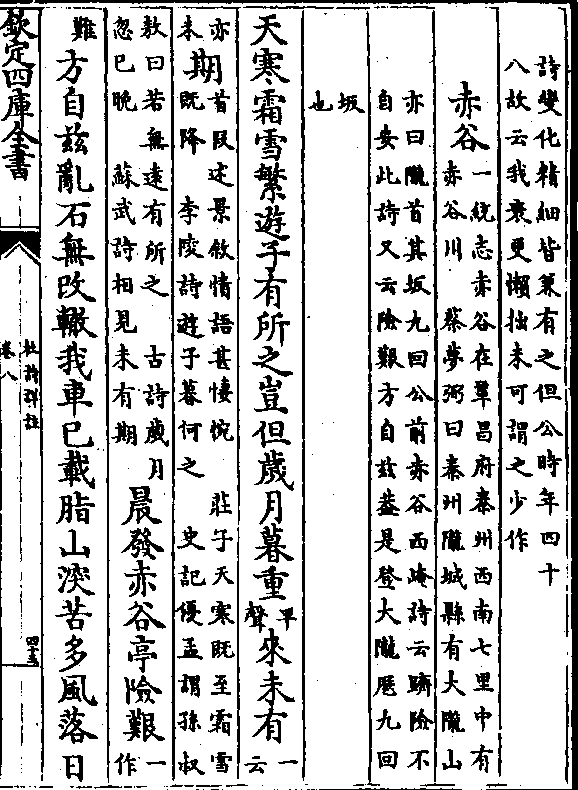 詩變化精細皆兼有之但公時年四十
八故云我衰更懶拙未可謂之少作
赤谷
一統志赤谷在鞏昌府秦州西南七里中有
赤谷川　蔡夢弼曰秦州隴城縣有大隴山
亦曰隴首其坂九回公前赤谷西崦詩云躋險不
自安此詩又云險艱方自兹葢是登大隴歷九回
坂
也
天寒霜雪繁遊子有所之豈但歲月暮重平聲來未有一云
亦
未
期
首叚述景敘情語甚悽惋　莊子天寒既至霜雪
既降　李陵詩遊子暮何之　史記優孟謂孫叔
敖曰若無遠有所之　古詩歲月
忽已晚　蘇武詩相見未有期
晨發赤谷亭險艱一作
難方自兹亂石無改轍我車已載脂山深苦多風落日
欽定四庫全書
杜詩詳註
卷八